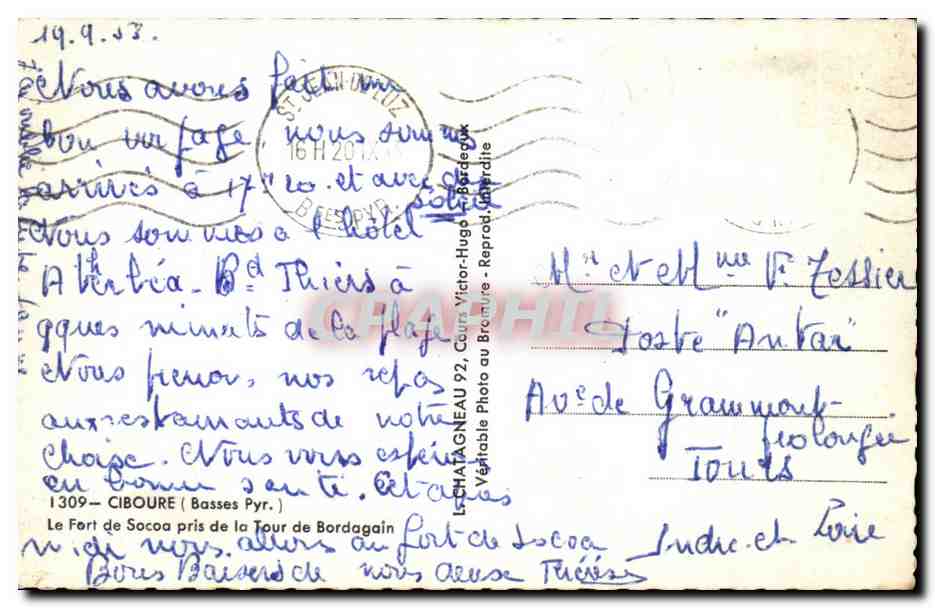 19.9.53.
Nous avons fait un
bon voyage, nous sommes
arrivés à 17h20. et avec du
soleil
Nous sommes à l'hôtel
Atherbéa - Bd Thiers à
qques minuts de la plage
Nous prenons nos repas
aux restaurants de notre
choix. Nous vous espérons
en bonne santé. Cet après
midi nous allons au fort de Socoa
Bons Baisers de nous deux Thérèse
ST JEAN-DE-LUZ
16 H 20
BSES PYR.
1309 — CIBOURE (Basses Pyr.)
Le Fort de Socoa pris de la Tour de Bordagain
CHATAGNEAU 92, Cours Victor-Hugo - Bordeaux
Véritable Photo au Bromure - Reprod. Interdite
CPAPHIL
Mr et Mme V. Tessier
Poste "Antar"
Ave de Grammont
prolongée
Tours
Indre-et-Loire